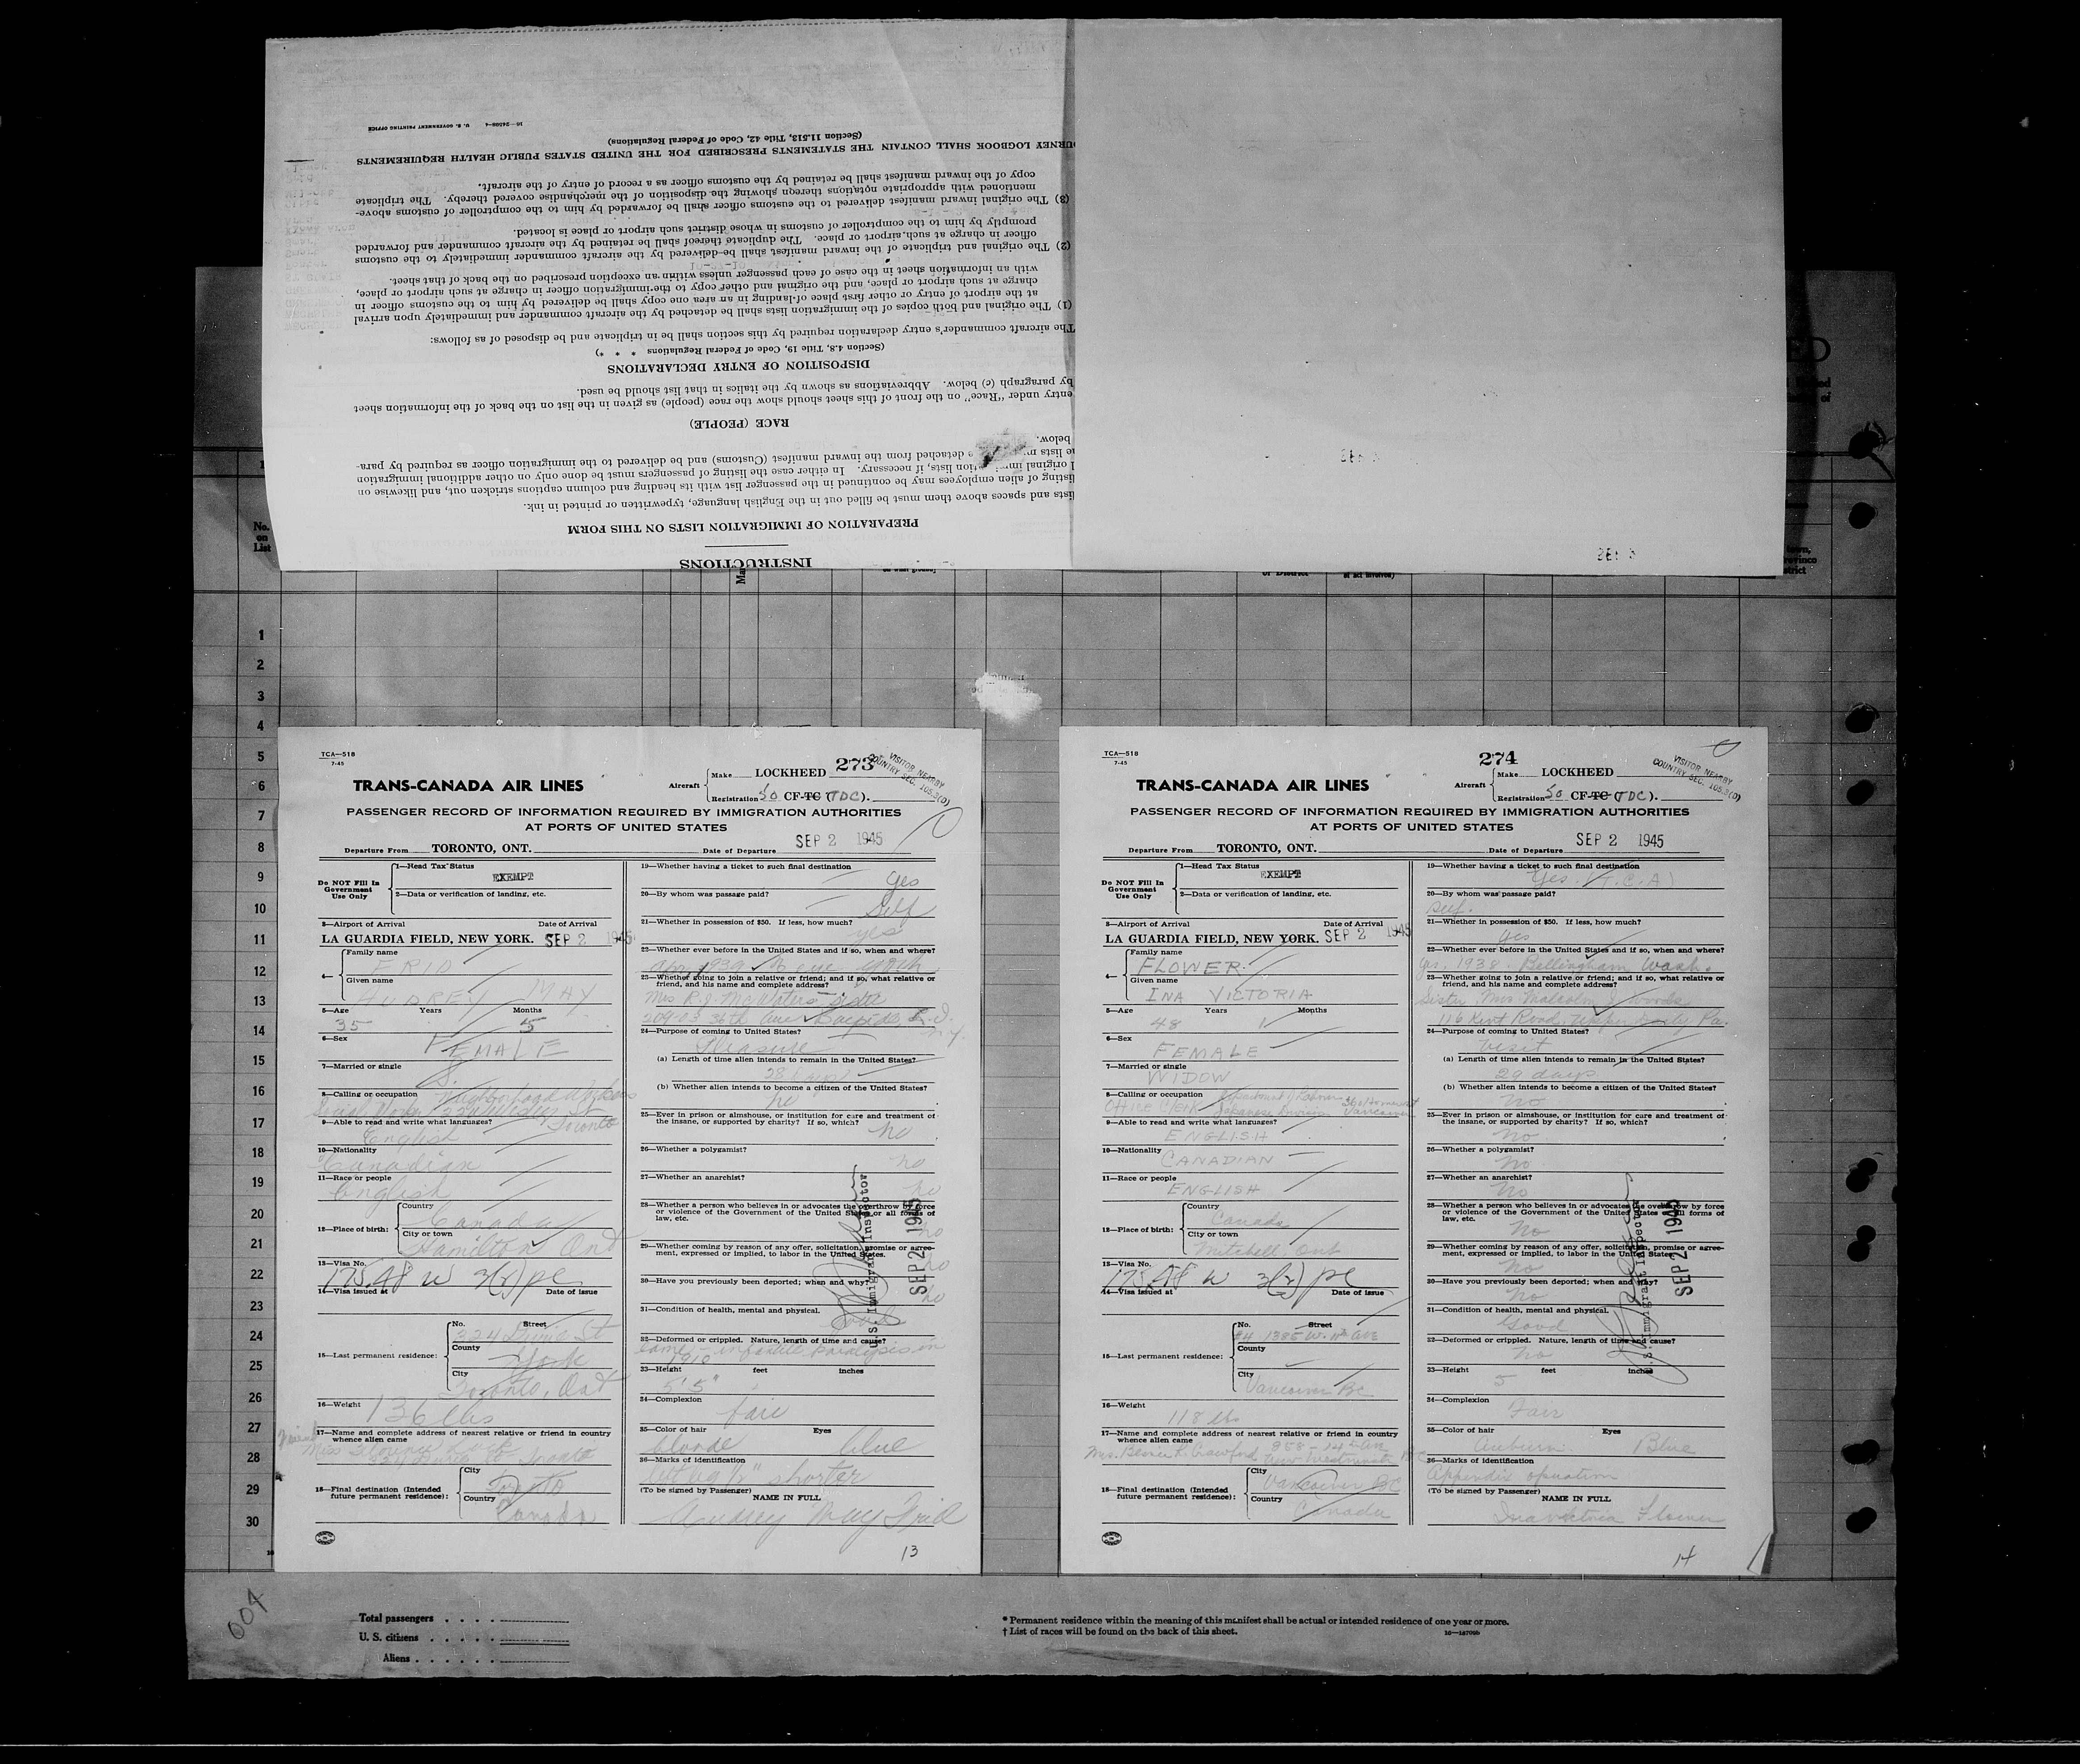 INSTRUCTIONS
PREPARATION OF IMMIGRATION LISTS ON THIS FORM
ists and spaces above them must be filled out in the English language, typewritten or printed in ink.
listing of alien employees may be continued in the passenger list with its heading and column captions stricken out, and likewise on
l original tion lists, if necessary. In either case the listing of passengers must be done only on other additional immigration
e lists detached from the inward manifest (Customs) and be delivered to the immigration officer as required by para-
below.
RACE (PEOPLE)
entry under "Race" on the front of this sheet should show the race (people) as given in the list on the back of the information sheet
by paragraph (c) below. Abbreviations as shown by the italics in that list should be used.
DISPOSITION OF ENTRY DECLARATIONS
(Section 4.8, Title 19, Code of Federal Regulations * * *)
The aircraft commander's entry declaration required by this section shall be in triplicate and be disposed of as follows:
(1) The original and both copies of the immigration lists shall be detached by the aircraft commander and immediately upon arrival
at the airport of entry or other first place of landing in an area one copy shall be delivered by him to the customs officer in
charge at such airport or place, and the original and other copy to the immigration officer in charge at such airport or place,
with an information sheet in the case of each passenger unless within an exception prescribed on the back of that sheet.
(2) The original and triplicate of the inward manifest shall be delivered by the aircraft commander immediately to the customs
officer in charge at such airport or place. The duplicate thereof shall be retained by the aircraft commander and forwarded
promptly by him to the comptroller of customs in whose district such airport or place is located.
(3) The original inward manifest delivered to the customs officer shall be forwarded by him to the comptroller of customs above-
mentioned with appropriate notations thereon showing the disposition of the merchandise covered thereby. The triplicate
copy of the inward manifest shall be retained by the customs officer as a record of entry of the aircraft.
URNEY LOGBOOK SHALL CONTAIN THE STATEMENTS PRESCRIBED FOR THE UNITED STATES PUBLIC HEALTH REQUIREMENTS
(Section 11.513, Title 42, Code of Federal Regulations)
U. S. GOVERNMENT PRINTING OFFICE
No.
on
List
1
2
3
4
5
6
7
8
9
10
11
12
13
14
15
16
17
18
19
20
21
22
23
24
25
26
27
28
29
30
TCA—518
7-45
TRANS-CANADA AIR LINES
Aircraft
Make LOCKHEED
273
Registration 50 CF-TC (TDC).
VISITOR NEARBY
COUNTRY SEC. 105.3(D)
PASSENGER RECORD OF INFORMATION REQUIRED BY IMMIGRATION AUTHORITIES
AT PORTS OF UNITED STATES
Departure From TORONTO, ONT.
Date of Departure SEP 2 1945
Do NOT Fill In
Government
Use Only
1—Head Tax Status
EXEMPT
2—Data or verification of landing, etc.
3—Airport of Arrival Date of Arrival
LA GUARDIA FIELD, NEW YORK. SEP 2 1945
4—
Family name
FRID
Given name
AUDREY MAY
5—Age Years Months
35 5
6—Sex
FEMALE
7—Married or single
S.
8—Calling or occupation
Neighborhood Workers
Toronto
9—Able to read and write what languages?
English
10—Nationality
Canadian
11—Race or people
English
12—Place of birth:
Country
Canada
City or town
Hamilton Ont
13—Visa No.
175.48 W 3(2) PL
14—Visa issued at Date of issue
15—Last permanent residence:
No. Street
324 St
County
York
City
Toronto, Ont
16—Weight
136 lbs
17—Name and complete address of nearest relative or friend in country
whence alien came
18—Final destination (Intended
future permanent residence):
City
Toronto
Country
Canada
19—Whether having a ticket to such final destination
Yes
20—By whom was passage paid?
Self
21—Whether in possession of $50. If less, how much?
yes
22—Whether ever before in the United States and if so, when and where?
1939
23—Whether going to join a relative or friend; and if so, what relative or
friend, and his name and complete address?
Mrs R.J. McWaters sister
209-03 36th Ave Bayside L.I.
N.Y.
24—Purpose of coming to United States?
Pleasure
(a) Length of time alien intends to remain in the United States?
28 days
(b) Whether alien intends to become a citizen of the United States?
no
25—Ever in prison or almshouse, or institution for care and treatment of
the insane, or supported by charity? If so, which?
no
26—Whether a polygamist?
no
27—Whether an anarchist?
no
28—Whether a person who believes in or advocates the overthrow by force
or violence of the Government of the United States or all forms of
law, etc.
no
29—Whether coming by reason of any offer, solicitation, promise or agree-
ment, expressed or implied, to labor in the United States.
no
30—Have you previously been deported; when and why?
no
31—Condition of health, mental and physical.
Good
32—Deformed or crippled. Nature, length of time and cause?
lame - infantile paralysis in
1910
33—Height feet inches
5' 5"
34—Complexion
fair
35—Color of hair Eyes
blonde blue
36—Marks of identification
left leg ½" shorter
(To be signed by Passenger) NAME IN FULL
Audrey May Frid
U.S. Immigrant Inspector
SEP 2 1945
13
TCA—518
7-45
TRANS-CANADA AIR LINES
274
Aircraft
Make LOCKHEED
Registration 50 CF-TC (TDC).
VISITOR NEARBY
COUNTRY SEC. 105.3(D)
PASSENGER RECORD OF INFORMATION REQUIRED BY IMMIGRATION AUTHORITIES
AT PORTS OF UNITED STATES
Departure From TORONTO, ONT.
Date of Departure SEP 2 1945
Do NOT Fill In
Government
Use Only
1—Head Tax Status
EXEMPT
2—Data or verification of landing, etc.
3—Airport of Arrival Date of Arrival
LA GUARDIA FIELD, NEW YORK. SEP 2 1945
4—
Family name
FLOWER
Given name
INA VICTORIA
5—Age Years Months
48 1
6—Sex
FEMALE
7—Married or single
WIDOW
8—Calling or occupation
Office Clerk Department of Labour
Japanese Division Vancouver
9—Able to read and write what languages?
ENGLISH
10—Nationality
CANADIAN
11—Race or people
ENGLISH
12—Place of birth:
Country
Canada
City or town
Mitchell, Ont
13—Visa No.
175.48 W 3(2) PL
14—Visa issued at Date of issue
15—Last permanent residence:
No. Street
1385 W. 11th Ave
County
City
Vancouver BC
16—Weight
118 lbs
17—Name and complete address of nearest relative or friend in country
whence alien came
Crawford, 958 - 14th Ave
New Westminster BC
18—Final destination (Intended
future permanent residence):
City
Vancouver BC
Country
Canada
19—Whether having a ticket to such final destination
Yes (T.C.A)
20—By whom was passage paid?
Self.
21—Whether in possession of $50. If less, how much?
Yes
22—Whether ever before in the United States and if so, when and where?
Yes, 1938 - Bellingham Wash.
23—Whether going to join a relative or friend; and if so, what relative or
friend, and his name and complete address?
Sister, Mrs. Malcolm J. Woods
116 Kent Road, Upper Darby Pa.
24—Purpose of coming to United States?
Visit
(a) Length of time alien intends to remain in the United States?
29 days
(b) Whether alien intends to become a citizen of the United States?
No
25—Ever in prison or almshouse, or institution for care and treatment of
the insane, or supported by charity? If so, which?
No
26—Whether a polygamist?
No
27—Whether an anarchist?
No
28—Whether a person who believes in or advocates the overthrow by force
or violence of the Government of the United States or all forms of
law, etc.
No
29—Whether coming by reason of any offer, solicitation, promise or agree-
ment, expressed or implied, to labor in the United States.
No
30—Have you previously been deported; when and why?
No
31—Condition of health, mental and physical.
Good
32—Deformed or crippled. Nature, length of time and cause?
No
33—Height feet inches
5
34—Complexion
Fair
35—Color of hair Eyes
Auburn Blue
36—Marks of identification
Appendix operation
(To be signed by Passenger) NAME IN FULL
Ina Victoria Flower
U.S. Immigrant Inspector
SEP 2 1945
14
004
Total passengers
U. S. citizens
Aliens
* Permanent residence within the meaning of this manifest shall be actual or intended residence of one year or more.
† List of races will be found on the back of this sheet.